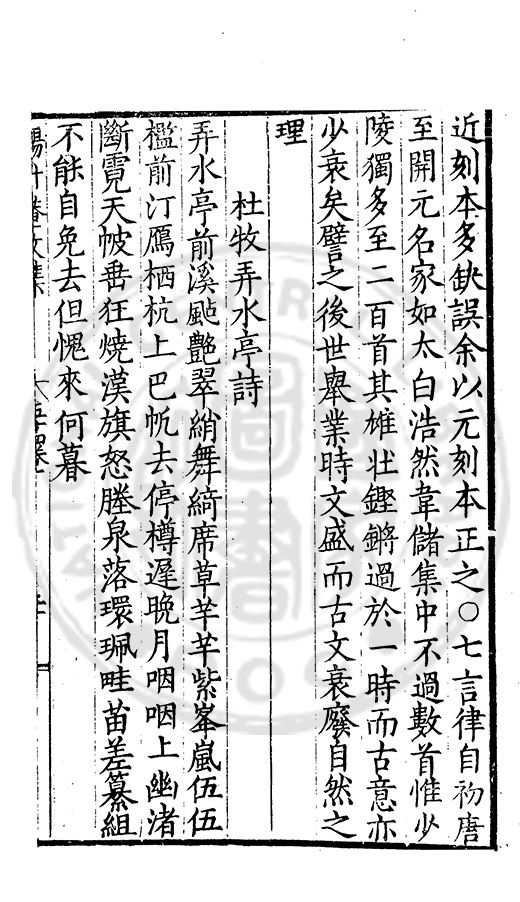 近刻本多缺誤余以元刻本正之○七言律自初唐
至開元名家如太白浩然韋儲集中不過數首惟少
陵獨多至二百首其雄壯鏗鏘過於一時而古意亦
少衰矣譬之後世舉業時文盛而古文衰廢自然之
理
杜牧弄水亭詩
弄水亭前溪颭艷翠綃舞綺席草芊芊紫峯嵐伍伍
檻前汀鴈栖杭上巴帆去停樽遲晚月咽咽上幽渚
斷霓天帔垂狂燒漢旗怒塍泉落環珮畦苗差纂組
不能自免去但愧來何暮